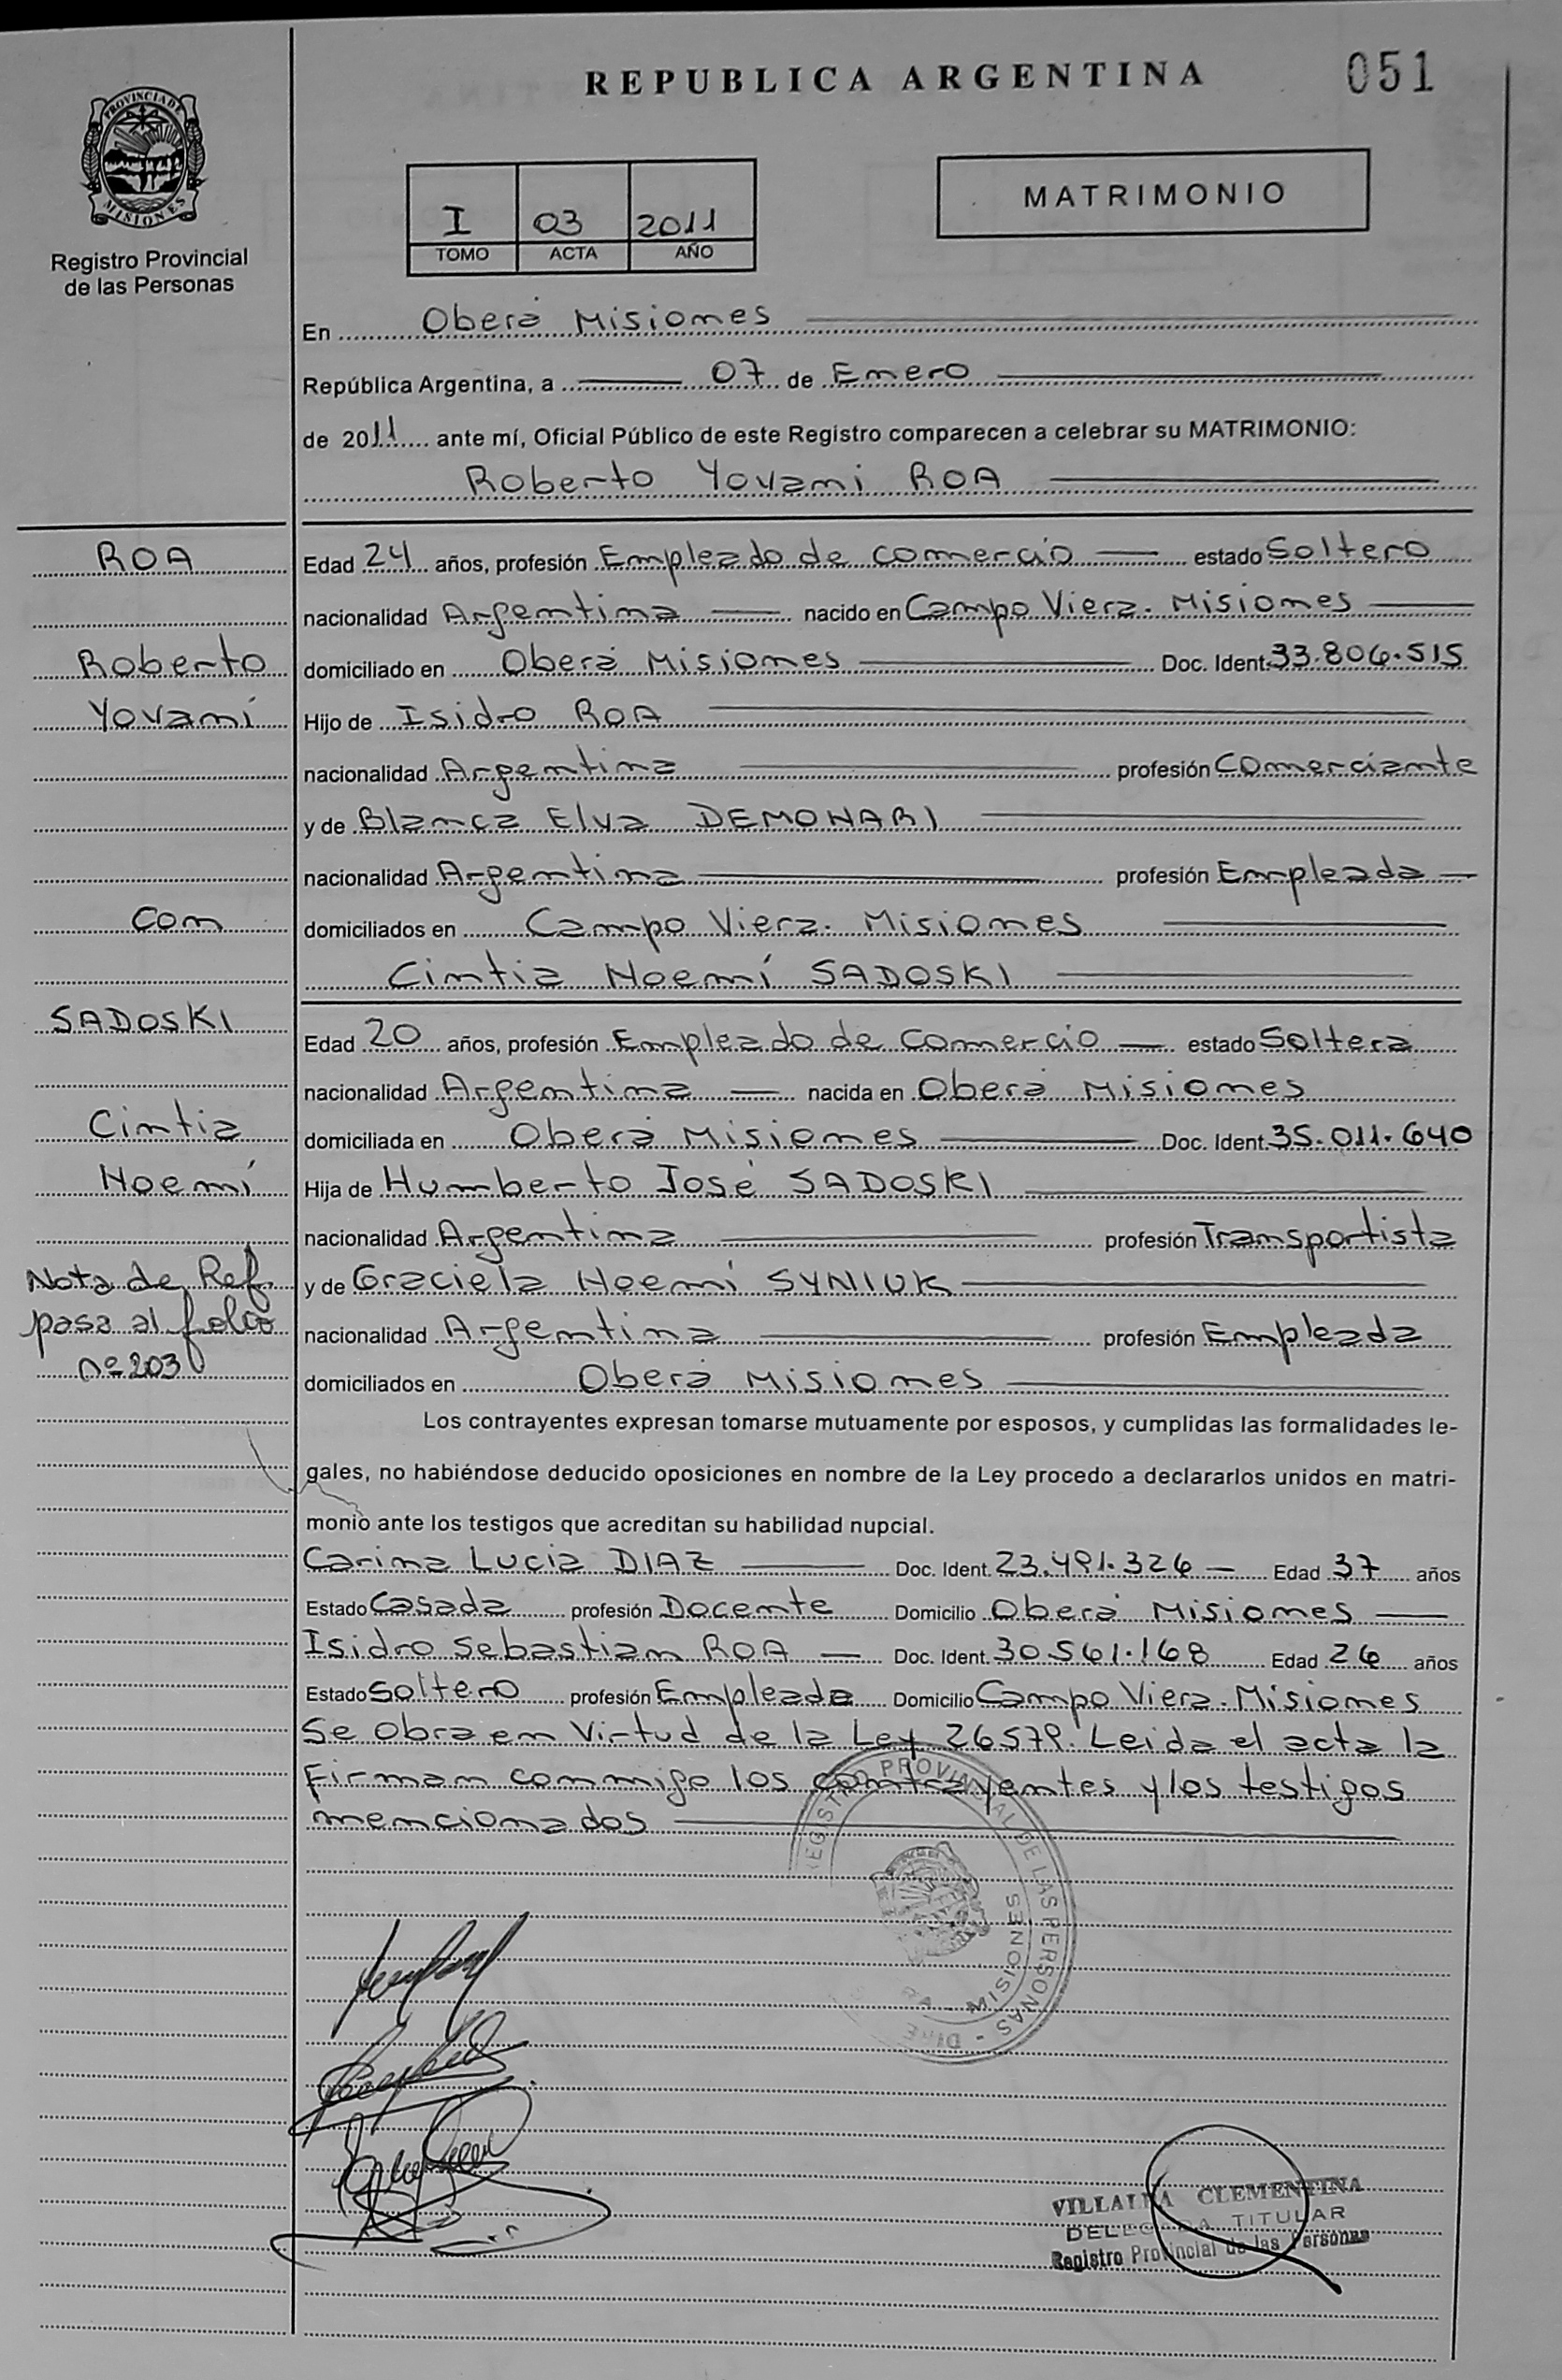 REPUBLICA ARGENTINA
051
PROVINCIA DE
MISIONES
Registro Provincial
de las Personas
I 03 2011
TOMO ACTA AÑO
MATRIMONIO
En Oberá Misiones
República Argentina, a 07 de Enero
de 2011 ante mí, Oficial Público de este Registro comparecen a celebrar su MATRIMONIO:
Roberto Yovani ROA
ROA
Roberto
Yovaní
Con
SADOSKI
Cintia
Noemí
Nota de Ref.
pasa al folio
nº 203
Edad 24 años, profesión Empleado de comercio estado Soltero
nacionalidad Argentina nacido en Campo Viera. Misiones
domiciliado en Oberá Misiones Doc. Ident. 33.806.515
Hijo de Isidro ROA
nacionalidad Argentina profesión Comerciante
y de Blanca Elva DEMONARI
nacionalidad Argentina profesión Empleada
domiciliados en Campo Viera. Misiones
Cintia Noemí SADOSKI
Edad 20 años, profesión Empleado de Comercio estado Soltera
nacionalidad Argentina nacida en Oberá Misiones
domiciliada en Oberá Misiones Doc. Ident. 35.011.640
Hija de Humberto José SADOSKI
nacionalidad Argentina profesión Transportista
y de Graciela Noemí SYNIUK
nacionalidad Argentina profesión Empleada
domiciliados en Oberá Misiones
Los contrayentes expresan tomarse mutuamente por esposos, y cumplidas las formalidades le-
gales, no habiéndose deducido oposiciones en nombre de la Ley procedo a declararlos unidos en matri-
monio ante los testigos que acreditan su habilidad nupcial.
Carina Lucia DIAZ Doc. Ident. 23.491.326 Edad 37 años
Estado Casada profesión Docente Domicilio Oberá Misiones
Isidro Sebastian ROA Doc. Ident. 30.561.168 Edad 26 años
Estado Soltero profesión Empleado Domicilio Campo Viera. Misiones
Se Obra en Virtud de la Ley 26579. Leida el acta la
Firman conmigo los contrayentes y los testigos
mencionados
REGISTRO PROVINCIAL DE LAS PERSONAS - DIRE
MISIONES
VILLALBA CLEMENTINA
DELEGADA TITULAR
Registro Provincial de las Personas